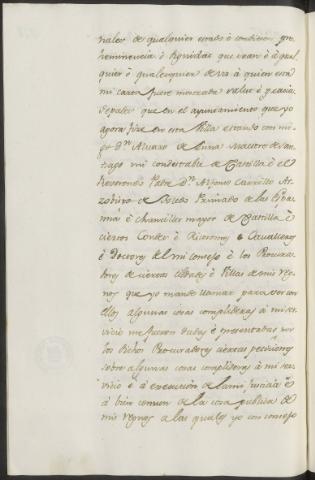 rales de qualquier estado è condicion pre
heminencia è dignidad que sean è à qual
quier è qualesquier de vos à quien esta
mi carta fuere mostrada salud è gracia
Sepades que en el ayuntamiento que yo
agora fize en esta Villa estando con mi
go Dn. Alvaro de Luna Maestre de San
tiago mi condestable de Castilla è el
Reverendo Padre Dn. Alfonso Carrillo Ar
zobispo de Toledo Primado de las Espa
ñas è Chanciller mayor de Castilla è
ciertos Condes è Ricosomes è Cavalleros
è Doctores del mi consejo è los Procura
dores de ciertas cibdades è Villas de mis reg
nos que yo mandé llamar para ver con
ellos algunas cosas complideras à mi ser
vicio me fueron dadas è presentadas por
los dichos Procuradores ciertas peticiones
sobre algunas cosas complideras à mi ser
vicio è à execucion de la mi justicia è
à bien comun de la cosa publica de
mis regnos a las quales yo con consejo